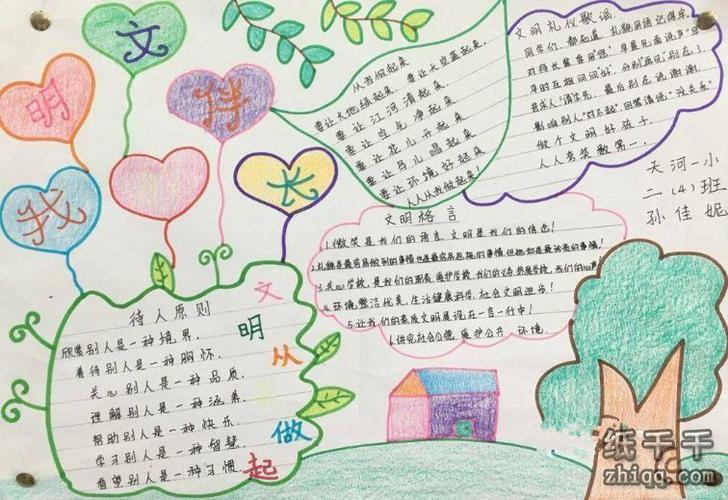 文
明
伴
我
长
从我做起来
要让大地绿起来,要让天空蓝起来,
要让江河清起来
要让白与净起来
要让花儿开起来
要让鸟儿唱起来
要让环境好起来
人人从我做起来!
文明礼仪歌谣
同学们,都知道,礼貌用语记得牢,
对待长辈要用"您",早晨见面说声"早"
平时互相问问"好",分别"再见"别忘了,
若求人"请"字先,最后别忘说谢谢,
影响别人"对不起",回答请说:"没关系"
做个文明好孩子,
人人夸奖数第一.
天河一小
二(4)班
孙佳妮
文明格言
1.微笑是我们的语言,文明是我们的信念!
2.礼貌是最容易做到的事情也是最容易忽视的事情,但他却是最珍贵的事情!
3.关心学校,是我们的职责,爱护学校,我们的义务,热爱学校,我们的心声
4.环境整洁优美,生活健康科学,社会文明进步!
5.让我们的素质文明展现在一言一行中!
6.讲究社会公德,爱护公共 环境.
待人原则
欣赏别人是一种境界,
善待别人是一种胸怀,
关心别人是一种品质,
理解别人是一种涵养,
帮助别人是一种快乐,
学习别人是一种智慧,
看望别人是一种习惯,
文
明
从
我
做
起
纸千千
zhiqq.com